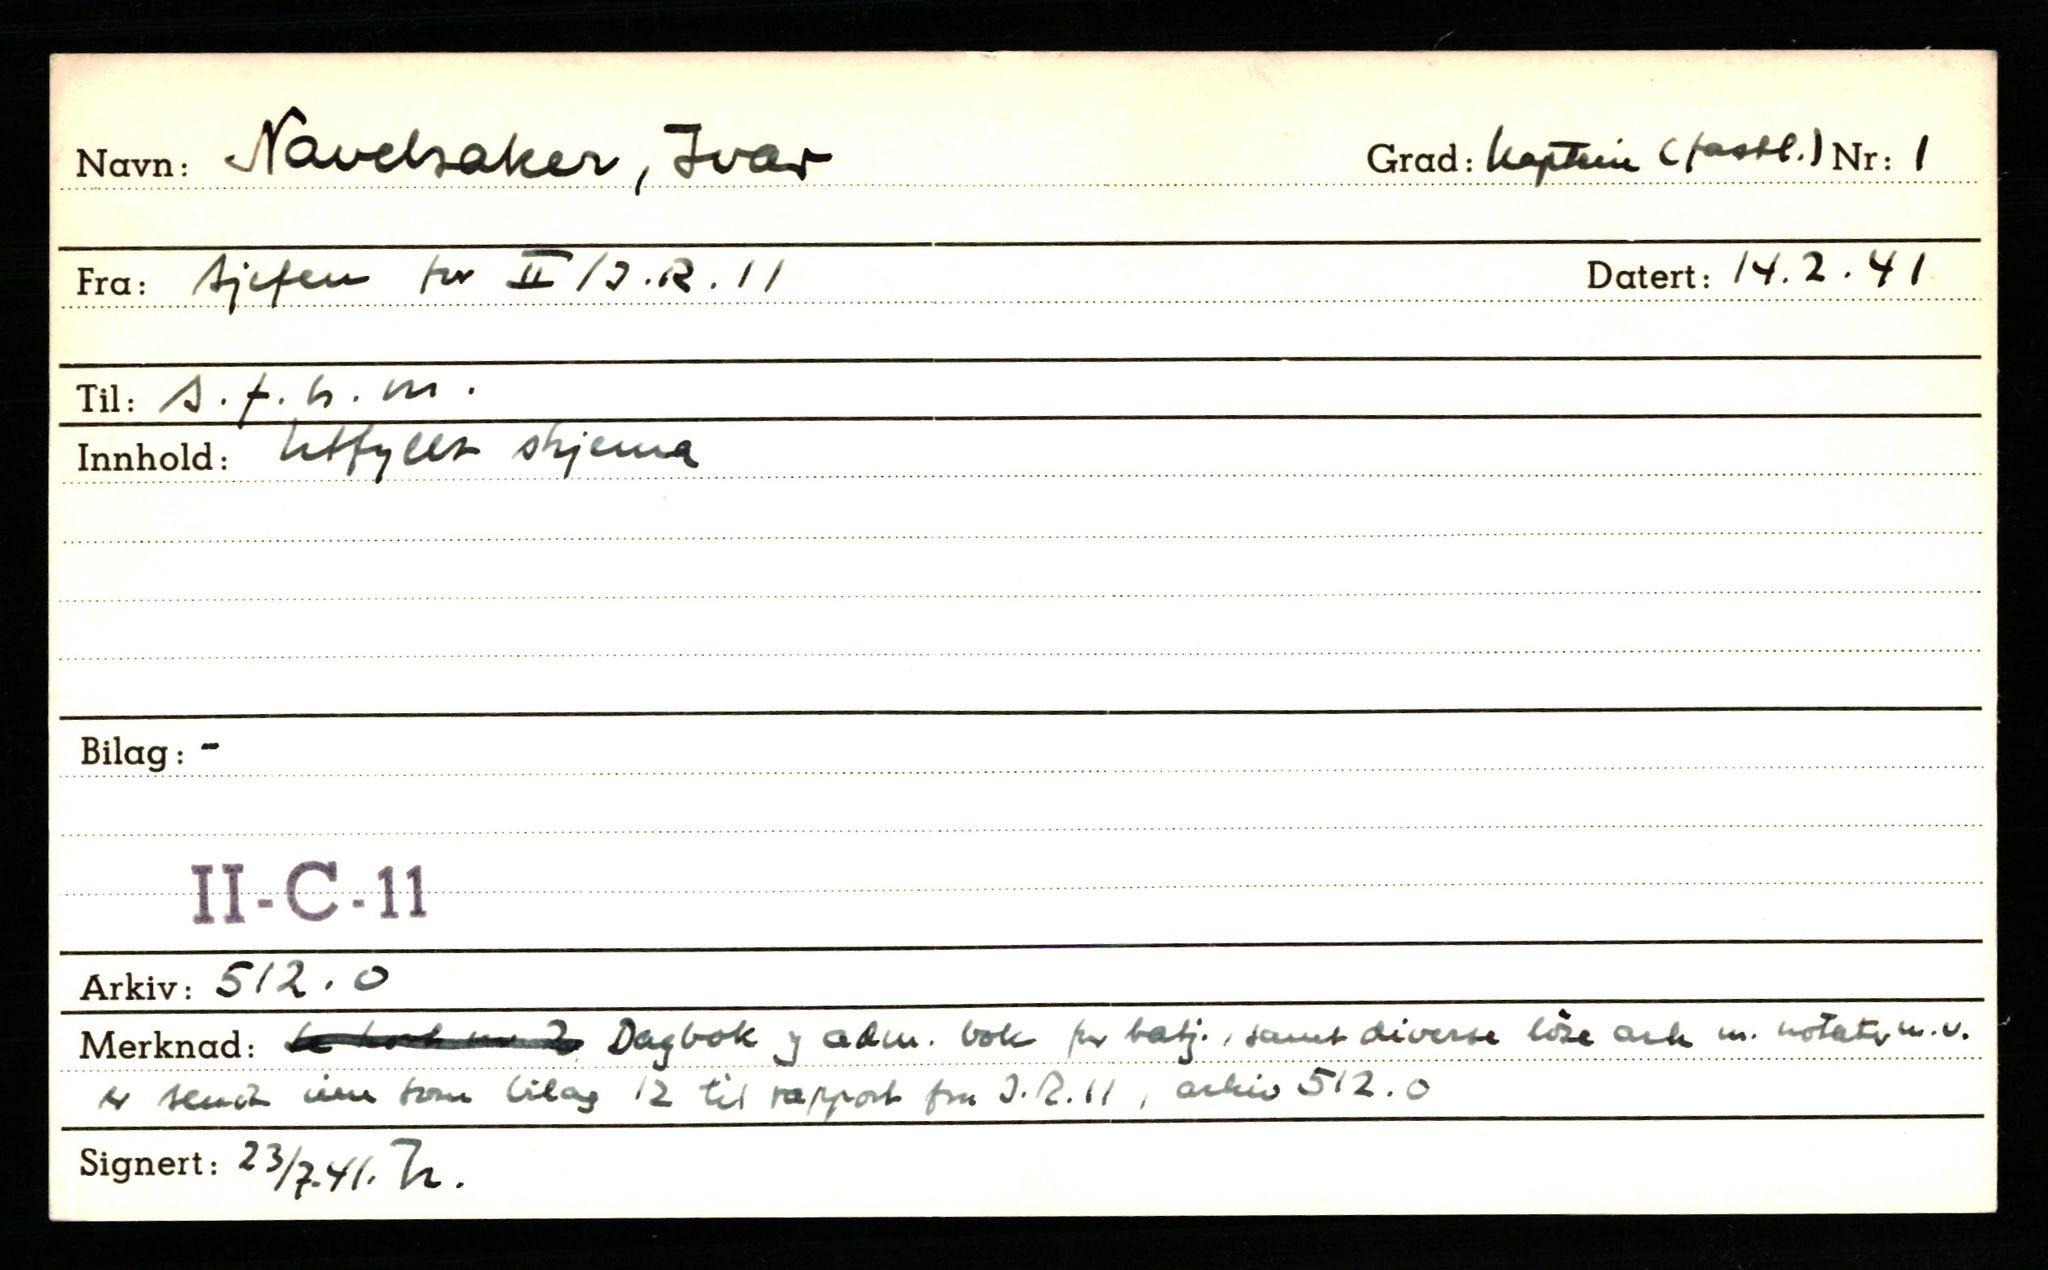 Navn: Navelsaker, Ivar Grad: Kaptein (fastl.) Nr: 1
Fra: Sjefen for II/I.R. 11 Datert: 14.2.41
Til: s.f.h.m.
Innhold: Utfyllt skjema
Bilag: -
II-C-11
Arkiv: 512.0
Merknad: Dagbok og adm. bok for batj., samt diverse löse ark m. notater m.v.
er sendt inn som bilag 12 til rapport fra I.R.11, arkiv 512.0
Signert: 23/7.41.